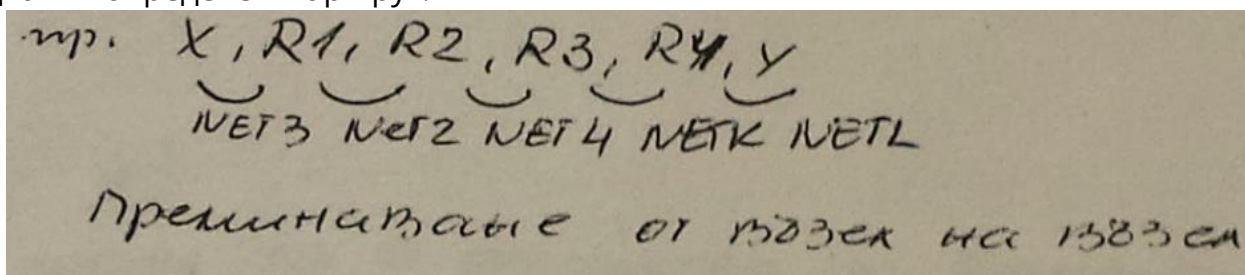 пр. X, R1, R2, R3, R4, Y
NET3 NET2 NET4 NETK NETL
Преминаване от възел на възел